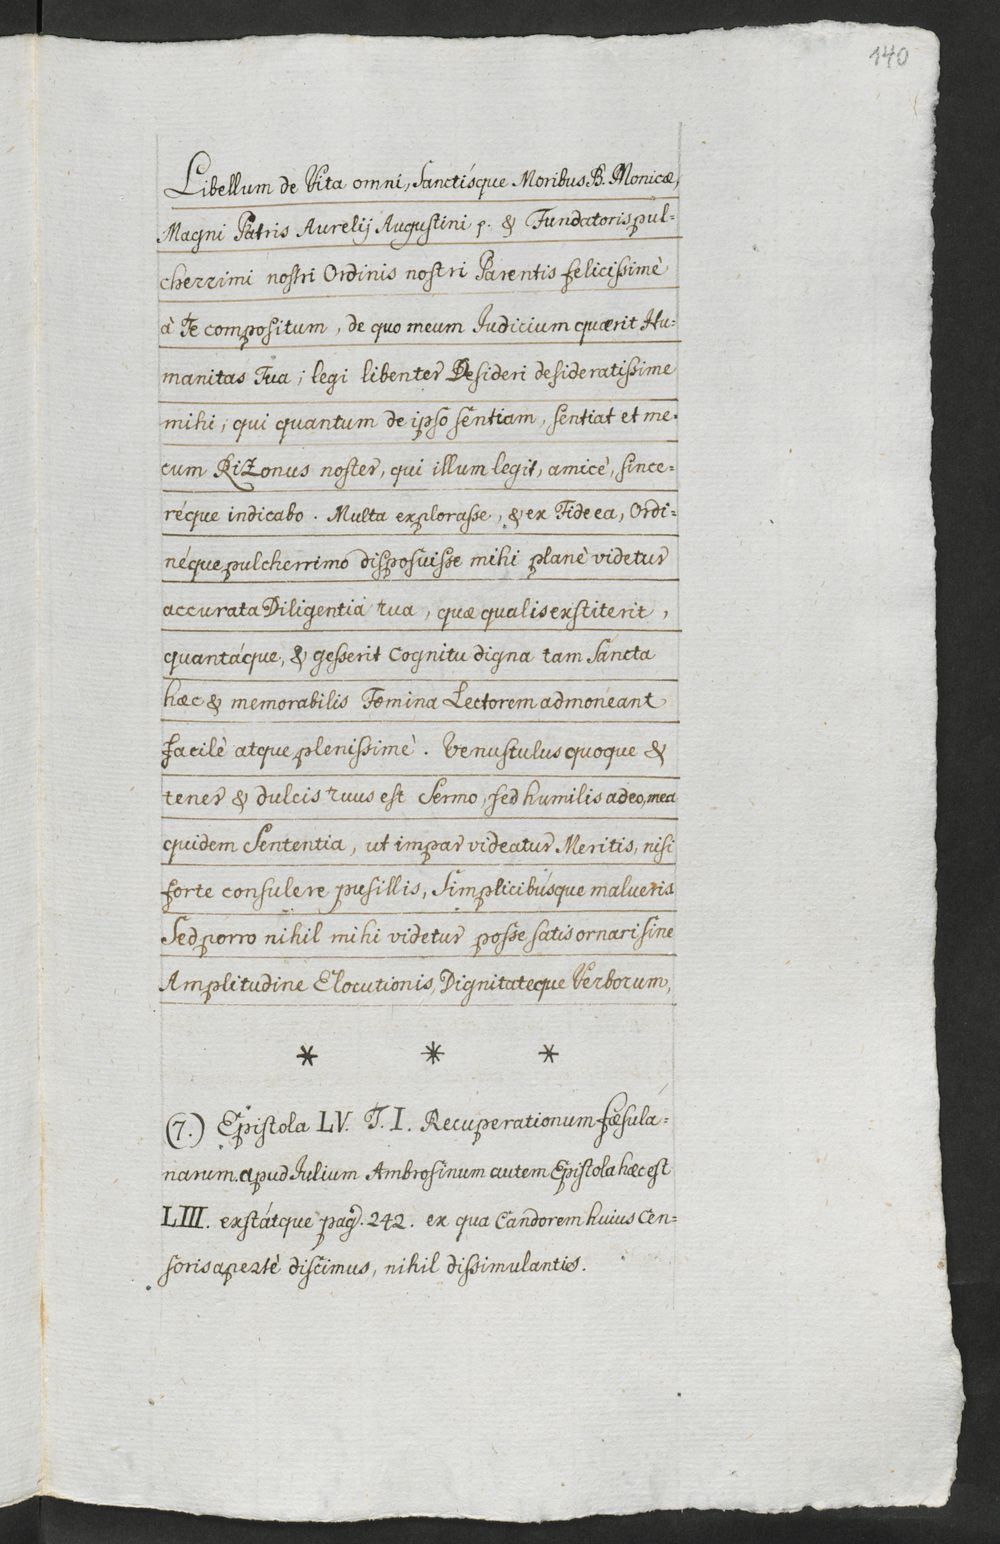 140
Libellum de Vita omni, Sanctísque Moribus B. Monicæ,
Magni Patris Aurelij Augustini p. & Fundatoris pul=
cherrimi nostri Ordinis nostri Parentis felicissimè
à Te compositum, de quo meum Judicium quærit Hu=
manitas Tua; legi libenter Desideri desideratissime
mihi; qui quantum de ipso sentiam, sentiat et me=
cum Rizonus noster, qui illum legit, amicè, since=
réque indicabo. Multa explorasse, & ex Fide ea, Ordi=
néque pulcherrimo disposuisse mihi planè videtur
accurata Diligentia tua, quæ qualis exstiterit,
quantáque, & gesserit Cognitu digna tam Sancta
hæc & memorabilis Fœmina Lectorem admoneant
facilè atque plenissimè. Venustulus quoque &
tener & dulcis tuus est Sermo, sed humilis adeo, mea
quidem Sententia, ut impar videatur Meritis, nisi
forte consulere pusillis, Simplicibúsque malueris
Sed porro nihil mihi videtur posse satis ornari sine
Amplitudine Elocutionis, Dignitateque Verborum,
* * *
(7.) Epistola LV. T. I. Recuperationum fæsula=
narum. apud Julium Ambrosinum autem Epistola hæc est
LIII. exstátque pag. 242. ex qua Candorem huius Cen=
soris apertè discimus, nihil dissimulantis.